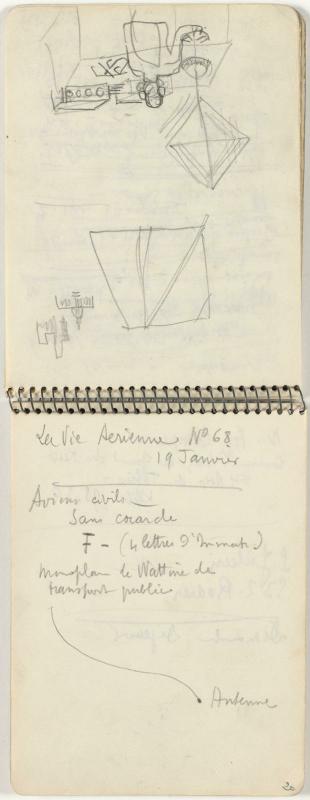 La Vie Aérienne No 68
19 Janvier
Avions civils
Sans cocarde
F - (4 lettres d'Immatr.)
monoplan le de
transport public
Antenne
20